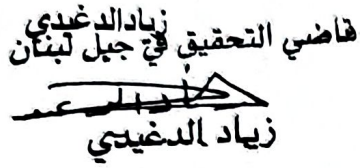 زياد الدغيدي
قاضي التحقيق في جبل لبنان
زياد الدغيدي